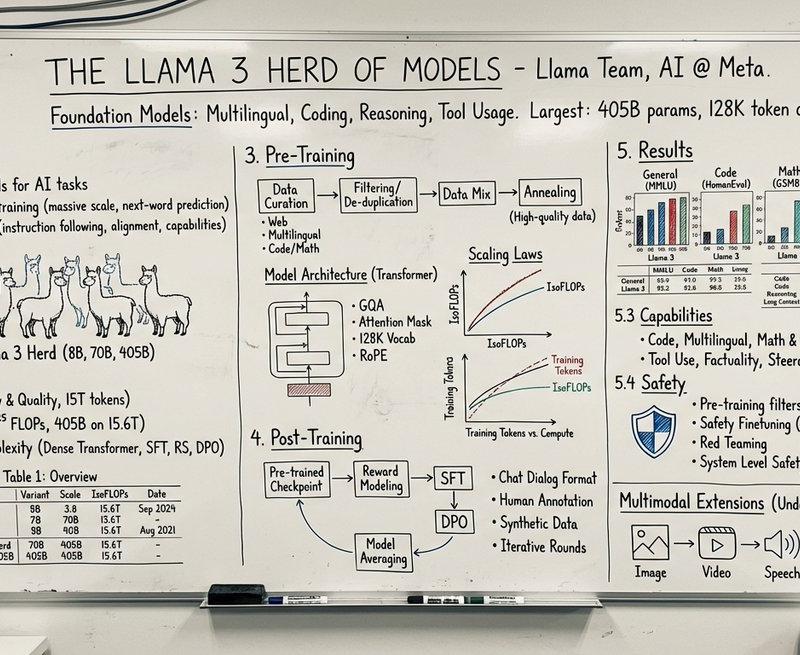 THE LLAMA 3 HERD OF MODELS – Llama Team, AI @ Meta.
Foundation Models: Multilingual, Coding, Reasoning, Tool Usage. Largest: 405B params, 128K token
ls for AI tasks
raining (massive scale, next-word prediction)
(instruction following, alignment, capabilities)
a 3 Herd (8B, 70B, 405B)
y & Quality, 15T tokens)
25 FLOPs, 405B on 15.6T)
plexity (Dense Transformer, SFT, RS, DPO)
Table 1: Overview
Variant Scale IsoFLOPs Date
8B 3.8 15.6T Sep 2024
7B 70B 13.6T -
9B 40B 15.6T Aug 2021
erd 70B 405B 15.6T -
405B 405B 15.6T -
3. Pre-Training
Data Curation
Filtering/ De-duplication
Data Mix
Annealing
(High-quality data)
• Web
• Multilingual
• Code/Math
Model Architecture (Transformer)
• GQA
• Attention Mask
• 128K Vocab
• RoPE
Scaling Laws
IsoFLOPs
IsoFLOPs
IsoFLOPs
Training Tokens
IsoFLOPs
Training Tokens vs. Compute
4. Post-Training
Pre-trained Checkpoint
Reward Modeling
SFT
DPO
Model Averaging
• Chat Dialog Format
• Human Annotation
• Synthetic Data
• Iterative Rounds
5. Results
General (MMLU)
Code (HumanEval)
Math (GSM8
Llama 3
Llama 3
Llama
MMLU Code Math
General
Llama 3
5.3 Capabilities
• Code, Multilingual, Math &
• Tool Use, Factuality, Steer
5.4 Safety
• Pre-training filters
• Safety Finetuning (
• Red Teaming
• System Level Safet
Multimodal Extensions (Und
Image
Video
Speech